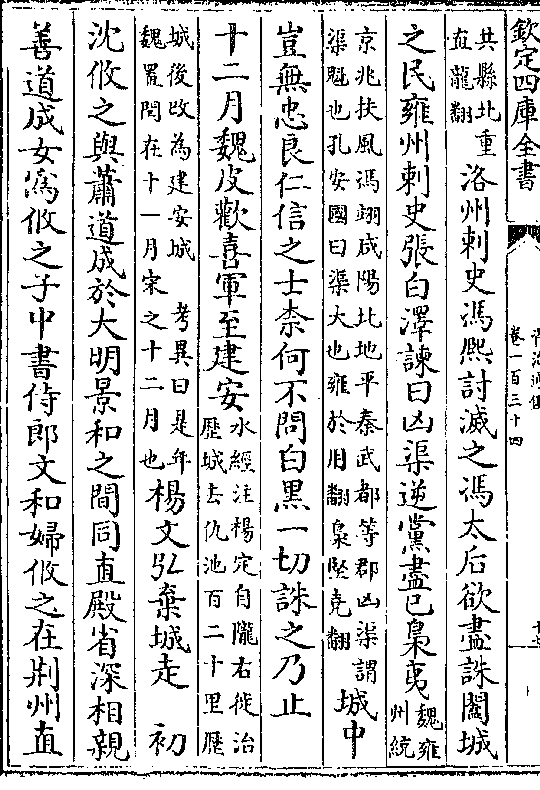 欽定四庫全書
卷一百三十四
共縣北重
直龍翻
洛州刺史馮熈討滅之馮太后欲盡誅闔城
之民雍州刺史張白澤諫曰凶渠逆黨盡已梟夷
魏雍
州統
京兆扶風馮翊咸陽北地平秦武都等郡凶渠謂
渠魁也孔安國曰渠大也雍於用翻梟堅堯翻
城中
豈無忠良仁信之士柰何不問白黑一切誅之乃止
十二月魏皮歡喜軍至建安
水經注楊定自隴右徙治
歷城去仇池百二十里歷
城後改為建安城 考異曰是年
魏置閏在十一月宋之十二月也
楊文弘棄城走 初
沈攸之與蕭道成於大明景和之間同直殿省深相親
善道成女為攸之子中書侍郎文和婦攸之在荆州直